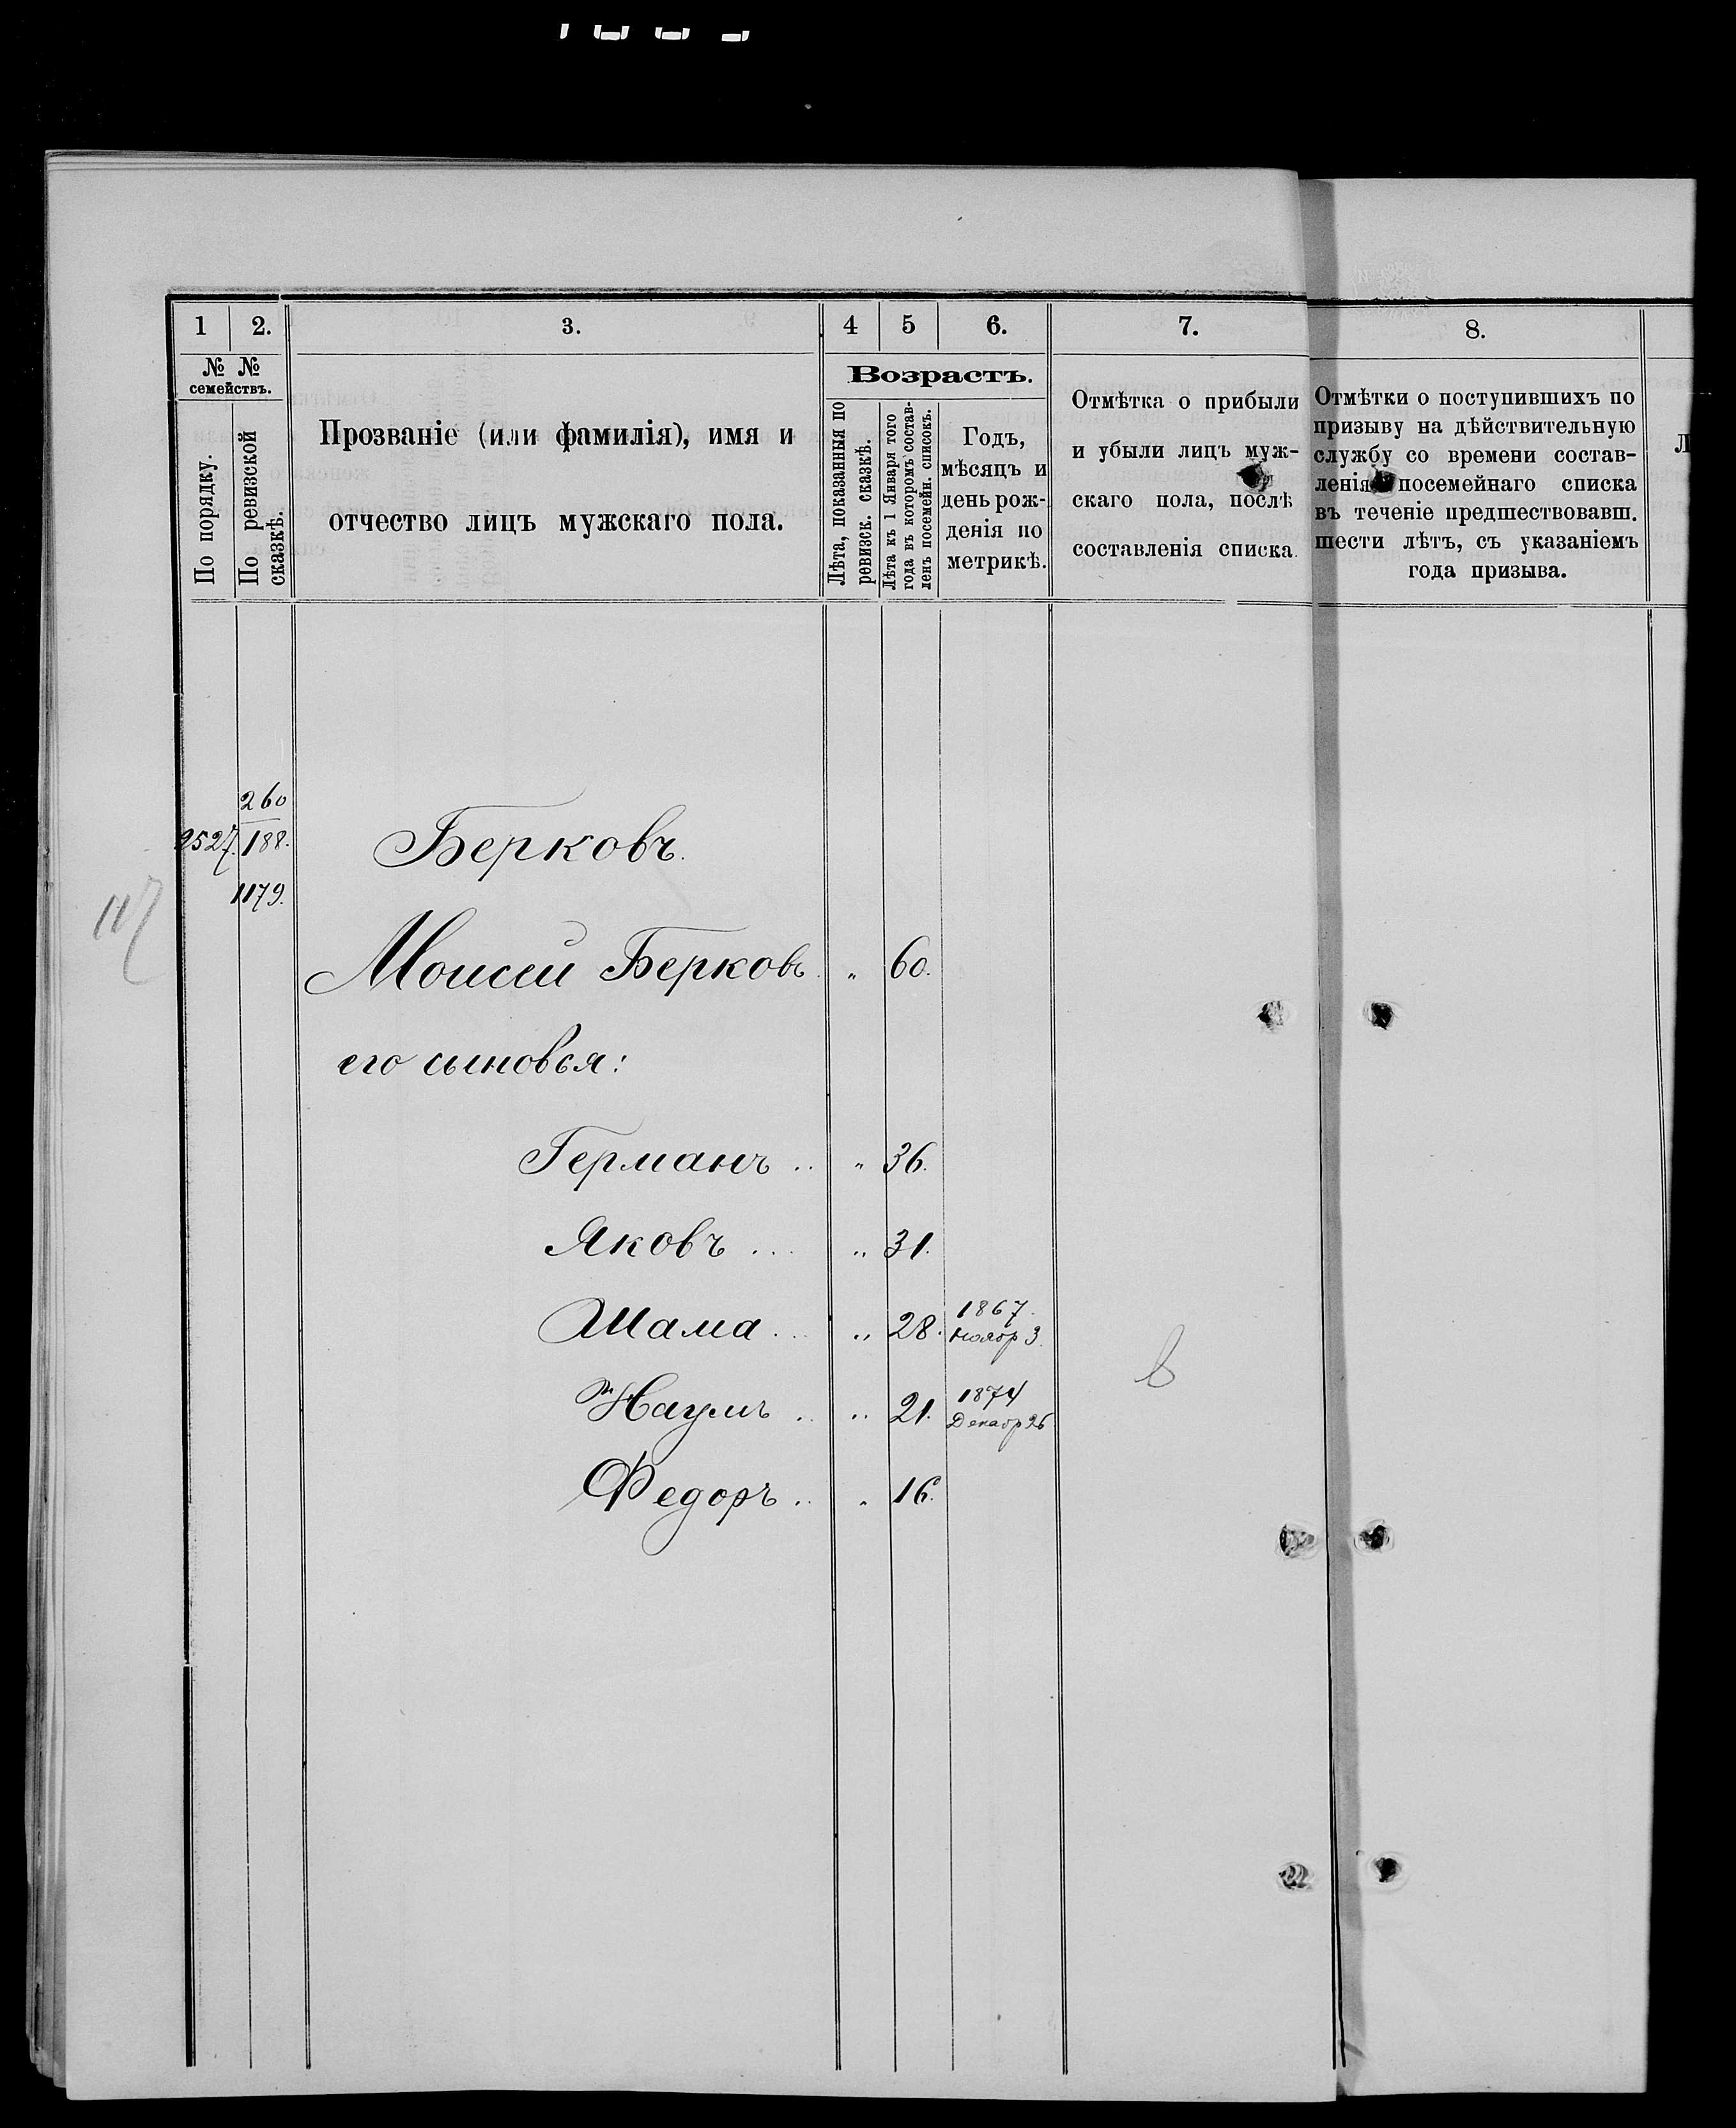 1 2. 3. 4 5 6. 7. 8.
№ №
семействъ.
По порядку.
По ревизской
сказкѣ.
Прозваніе (или фамилія), имя и
отчество лицъ мужскаго пола.
Возрастъ.
Лѣта, показанныя по
ревизск. сказкѣ.
Лѣта къ 1 Января того
года въ которомъ состав-
ленъ посемейн. списокъ.
Годъ,
мѣсяцъ и
день рож-
денія по
метрикѣ.
Отмѣтка о прибыли
и убыли лицъ муж-
скаго пола, послѣ
составленія списка.
Отмѣтки о поступившихъ по
призыву на дѣйствительную
службу со времени состав-
ленія посемейнаго списка
въ теченіе предшествовавш.
шести лѣтъ, съ указаніемъ
года призыва.
260
2527. 188. Берковъ.
1179.
117
Моисей Берковъ. " 60.
его сыновья:
Германъ .. " 36.
Яковъ ... " 31.
Шама ... " 28. 1867.
Ноябр 3.
Наумъ .. " 21. 1874
Декабр 26
Федоръ .. " 16.
в